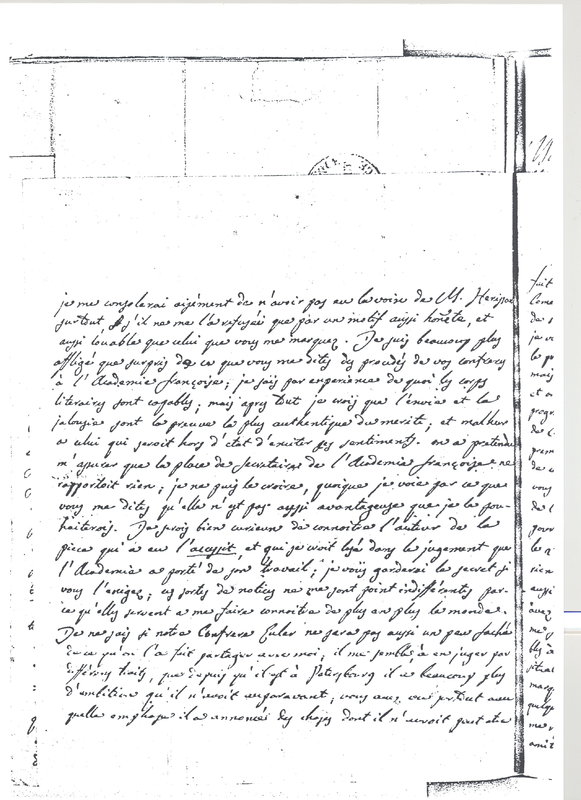 je me consolerai aisément de n'avoir pas eu la voix de M. Herissan
surtout s'il ne me l'a refusée que par un motif aussi honête, et
aussi louable que celui que vous me marquez. Je suis beaucoup plus
affligé que surpris de ce que vous me dites des procédés de vos confreres
à l'Academie françoise; je sais par experience de quoi les corps
literaires sont capables; mais apres tout je crois que l'envie et la
jalousie sont la preuve la plus authentique du merite; et malheur
a celui qui seroit hors d'état d'exciter ses sentiments. on a pretendu
m'assurer que la place de Secretaire de l'Academie françoise ne
rapportoit rien; je ne puis le croire, quoique je voie par ce que
vous me dites qu'elle n'est pas aussi avantageuse que je le sou-
haiterois. Je serois bien curieux de connoitre l'auteur de la
piece qui a eu l'accessit, et qui se croit lesé dans le jugement que
l'Academie a porté de son travail; je vous garderai le secret si
vous l'exigez; ces sortes de notices ne me sont point indifférentes par-
ce qu'elles servent a me faire connoitre de plus en plus le monde.
Je ne sais si notre Confrere Euler ne sera pas aussi un peu faché
de ce qu'on l'a fait partager avec moi; il me semble à en juger par
différens traits, que depuis qu'il est à Petersbourg il a beaucoup plus
d'ambition qu'il n'avoit auparavant; vous avez vu surtout avec
quelle emphase il a annoncé des choses dont il n'auroit peut etre